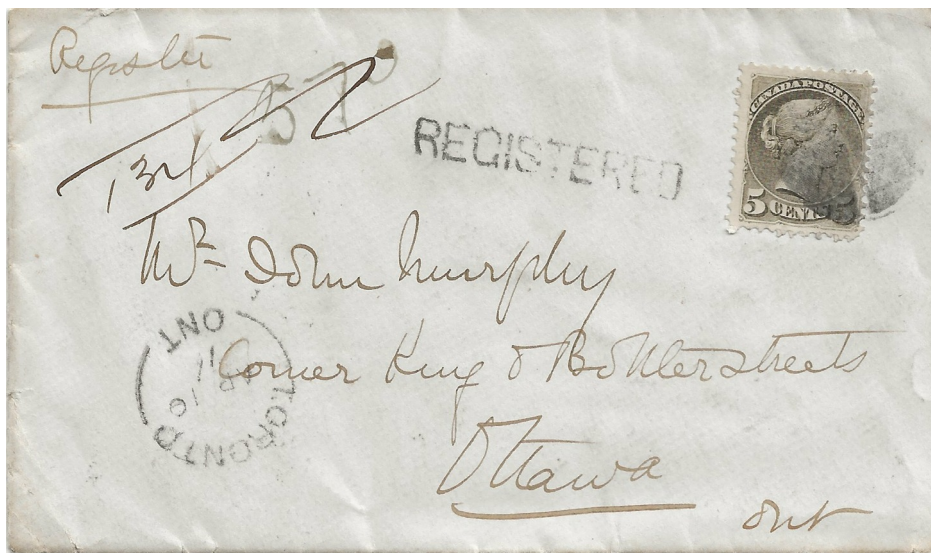 Register
REGISTERED
CANADA POSTAGE
5 CENTS 5
Mr John Murphy
Corner King & Bolter streets
Ottawa
Ont
TORONTO
ONT